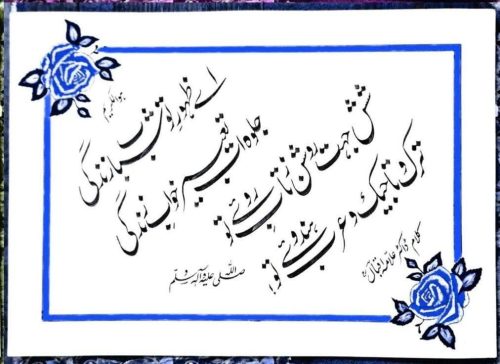 اے ظہور تو شباب زندگی
جلوہ ات تعبیر خواب زندگی
شش جہت روشن ز تاب روئے تو
ترک و تاجیک و عرب ہندوئے تو
صلی اللہ علیہ وآلہ وسلم
کلام ڈاکٹر علامہ اقبالؒ